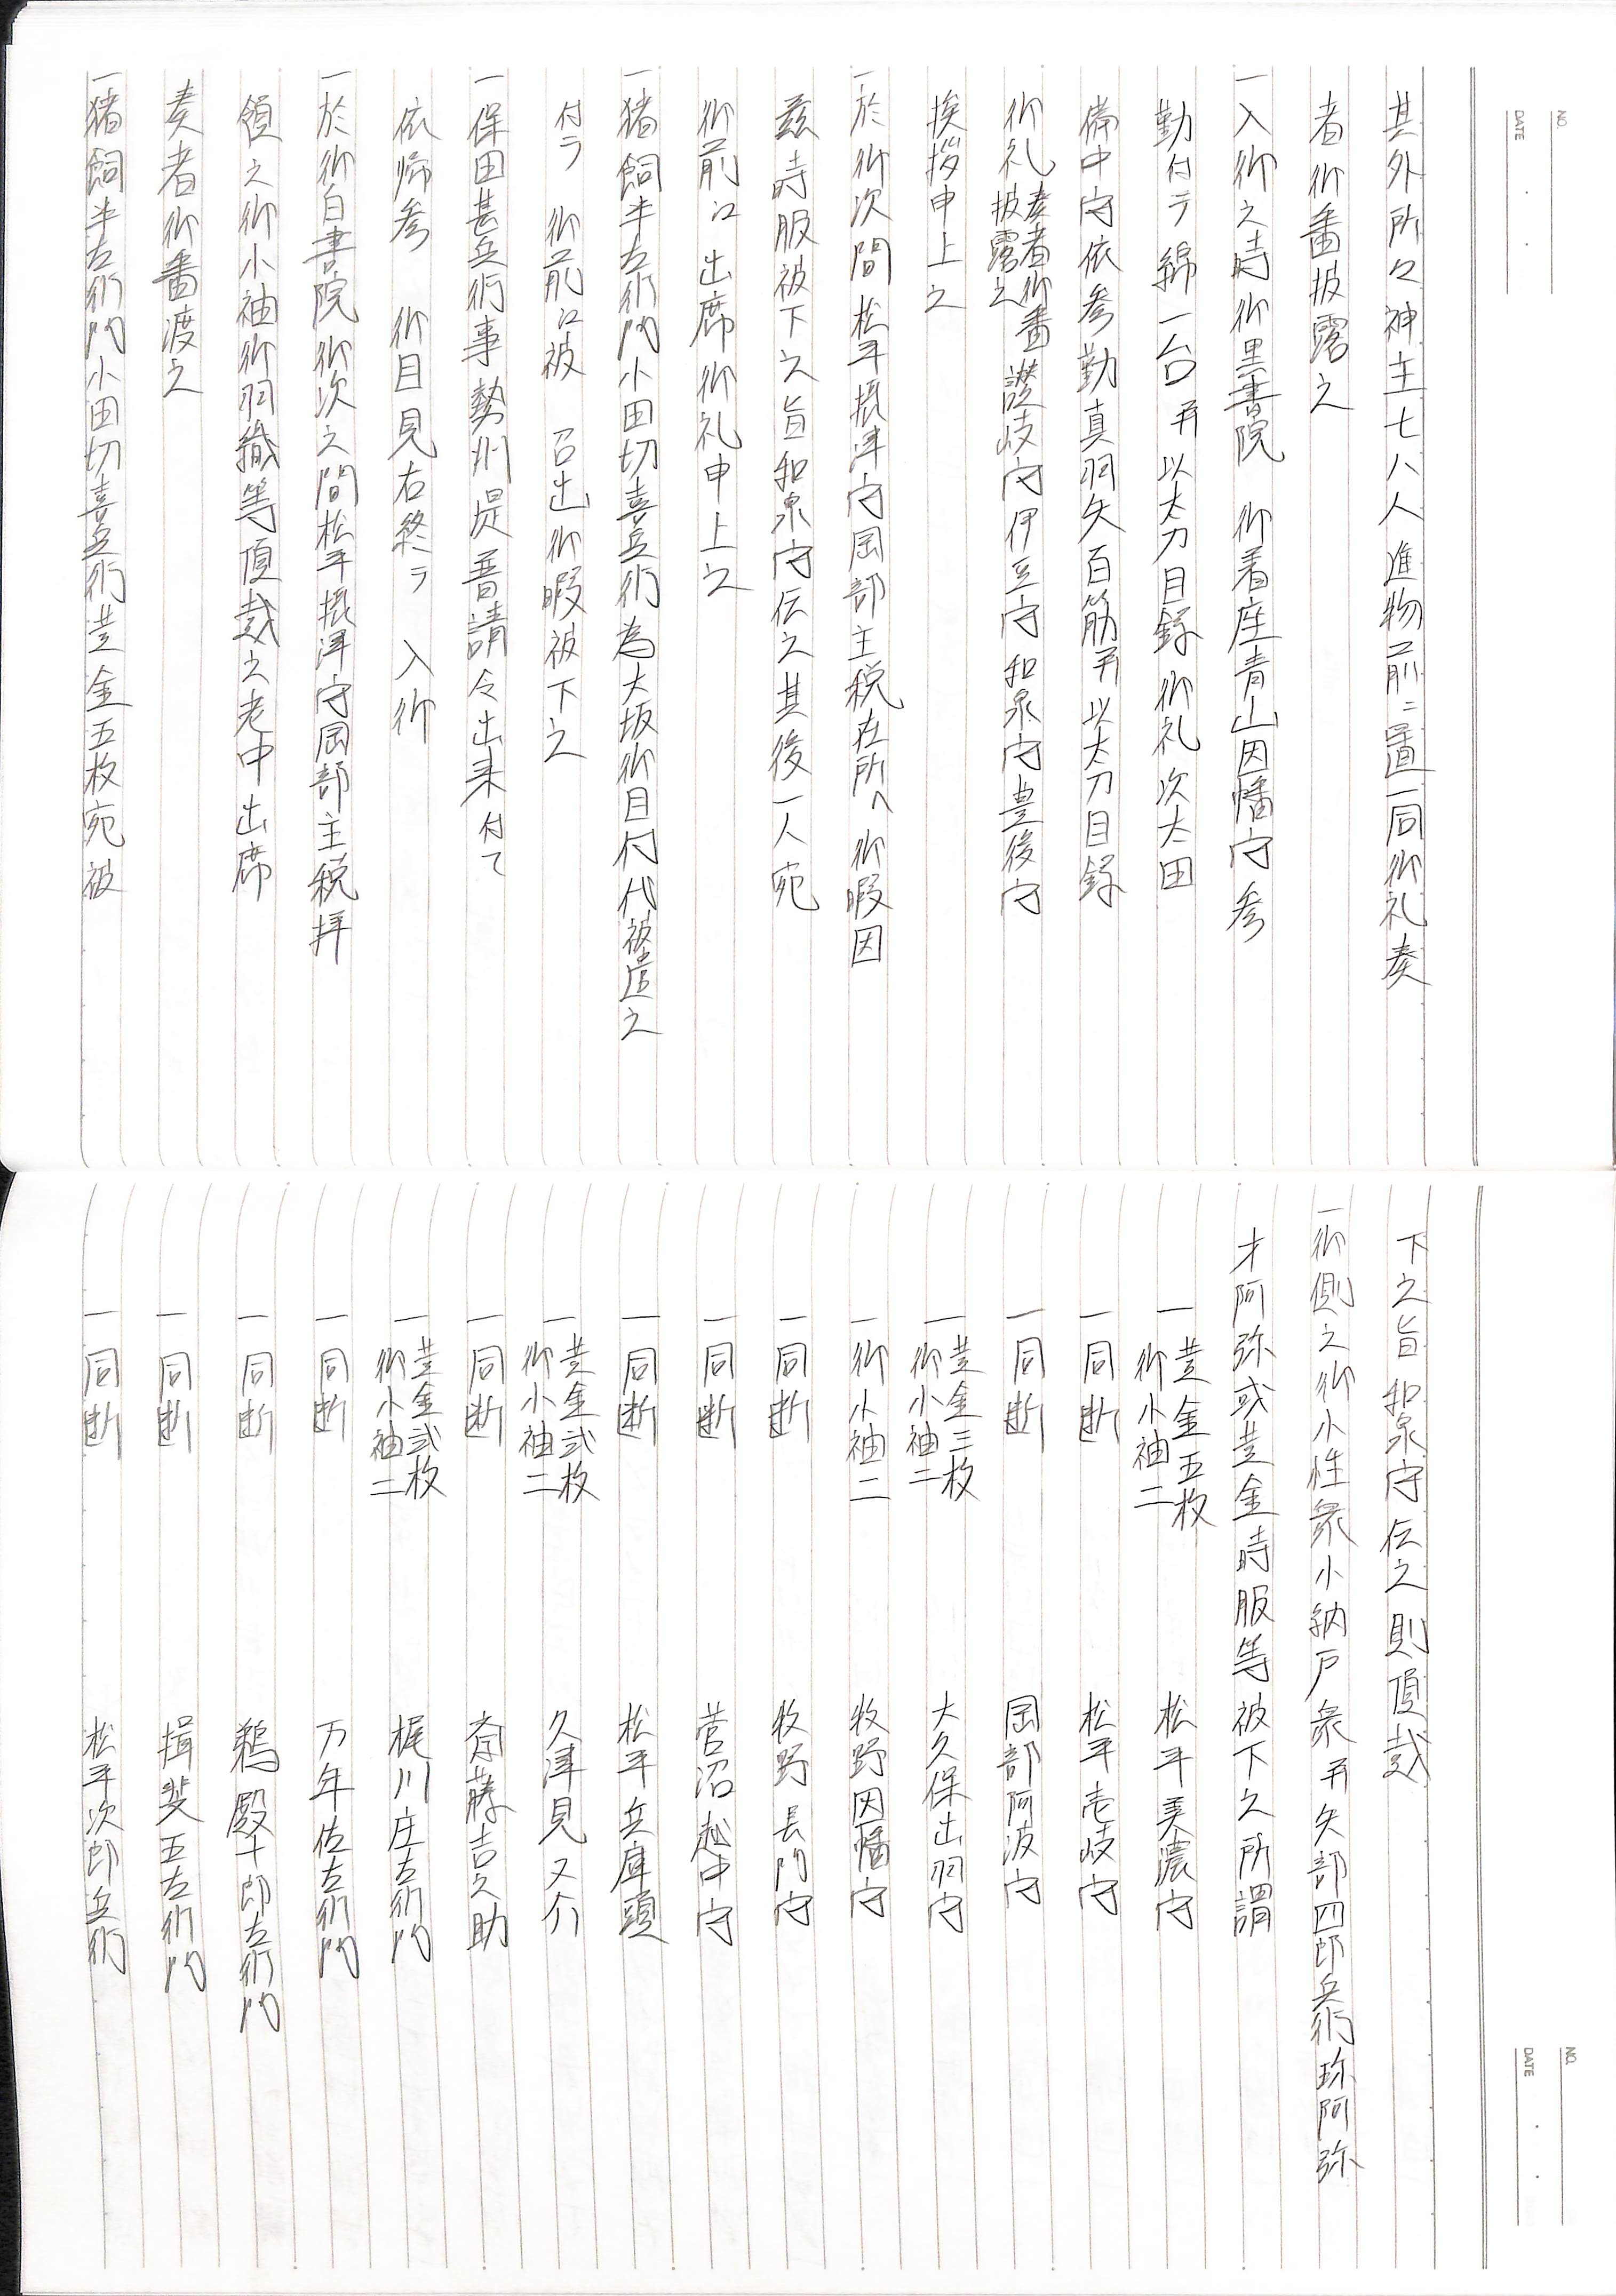 NO.
DATE
其外所々神主七八人進物前ニ置一同御礼奏
者御番披露之
一入御之時御黒書院　御着座青山因幡守参
勤付テ綿一台并以太刀目録御礼次太田
備中守依参勤真羽矢百筋并以太刀目録
御礼奏者御番披露之讃岐守伊豆守和泉守豊後守
挨拶申上之
一於御次間松平摂津守岡部主税在所へ御暇因
茲時服被下之旨和泉守伝之其後一人宛
御前江出席御礼申上之
一猪飼半左衛門小田切喜兵衛為大坂御目付代被遣之
付テ　御前江被　召出御暇被下之
一保田甚兵衛事勢州堤普請令出来付て
依帰参　御目見右終テ　入御
一於御白書院御次之間松平摂津守岡部主税拝
領之御小袖御羽織等頂戴之老中出席
奏者御番渡之
一猪飼半左衛門小田切喜兵衛黄金五枚宛被
NO.
DATE
下之旨和泉守伝之則頂戴
一御側之御小性衆小納戸衆并矢部四郎兵衛珎阿弥
才阿弥或黄金時服等被下之所謂
一黄金五枚御小袖二　松平美濃守
一同断　松平壱岐守
一同断　岡部阿波守
一黄金三枚御小袖二　大久保出羽守
一御小袖二　牧野因幡守
一同断　牧野長門守
一同断　菅沼越中守
一同断　松平兵庫頭
一黄金弐枚御小袖二　久津見又介
一同断　斎藤吉之助
一黄金弐枚御小袖二　梶川庄左衛門
一同断　万年佐左衛門
一同断　鵜殿十郎左衛門
一同断　揖斐五左衛門
一同断　松平次郎兵衛